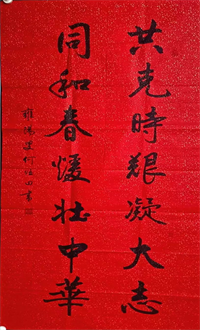 共克時艱凝大志
同和春煖壯中華